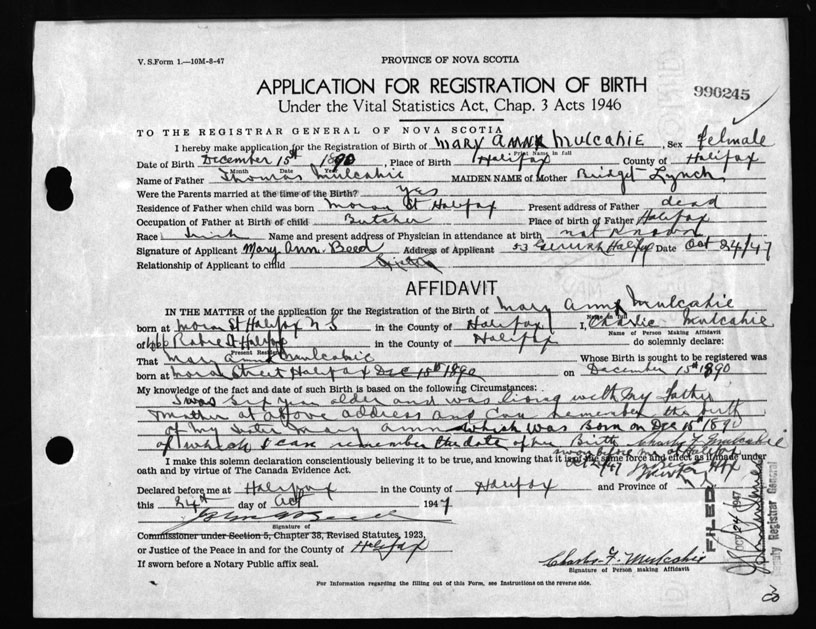 V. S. Form 1.—10M-8-47
PROVINCE OF NOVA SCOTIA
APPLICATION FOR REGISTRATION OF BIRTH
990245
Under the Vital Statistics Act, Chap. 3 Acts 1946
TO THE REGISTRAR GENERAL OF NOVA SCOTIA
I hereby make application for the Registration of Birth of Mary Ann Mulcahie, Sex Felmale
Print Name in full
Date of Birth December 15th 1890, Place of Birth Halifax County of Halifax
Month Date Year
Name of Father Thomas Mulcahie MAIDEN NAME of Mother Bridget Lynch
Were the Parents married at the time of the Birth? yes
Residence of Father when child was born St Halifax Present address of Father dead
Occupation of Father at Birth of child Butcher Place of birth of Father Halifax
Race Irish Name and present address of Physician in attendance at birth not known
Signature of Applicant Mary Ann Beed Address of Applicant 53 Halifax Date Oct 24/47
Relationship of Applicant to child
AFFIDAVIT
IN THE MATTER of the application for the Registration of the Birth of Mary Ann Mulcahie
Name in full
born at St Halifax N S in the County of Halifax I, Charlie Mulcahie
Name of Person Making Affidavit
of St Halifax in the County of Halifax do solemnly declare:
Present Residence
That Mary Ann Mulcahie Whose Birth is sought to be registered was
born at Street Halifax Dec 15th 1890 on December 15th 1890
My knowledge of the fact and date of such Birth is based on the following Circumstances:
I was Six year older and was living with my Father
Mother at above address and Can remember the birth
of my Sister Mary Ann which was Born on Dec 15th 1890
of which I can remember the date of her Birth Charles F. Mulcahie
sworn before me at Halifax
I make this solemn declaration conscientiously believing it to be true, and knowing that it is of the same force and effect as if made under
Oct 24/47
oath and by virtue of The Canada Evidence Act.
Declared before me at Halifax in the County of Halifax and Province of
this 24th day of Oct 1947
Signature of
Commissioner under Section 5, Chapter 38, Revised Statutes, 1923,
or Justice of the Peace in and for the County of Halifax
If sworn before a Notary Public affix seal.
Charles F. Mulcahie
Signature of Person making Affidavit
FILED
1947
Deputy Registrar General
For Information regarding the filling out of this Form, see Instructions on the reverse side.